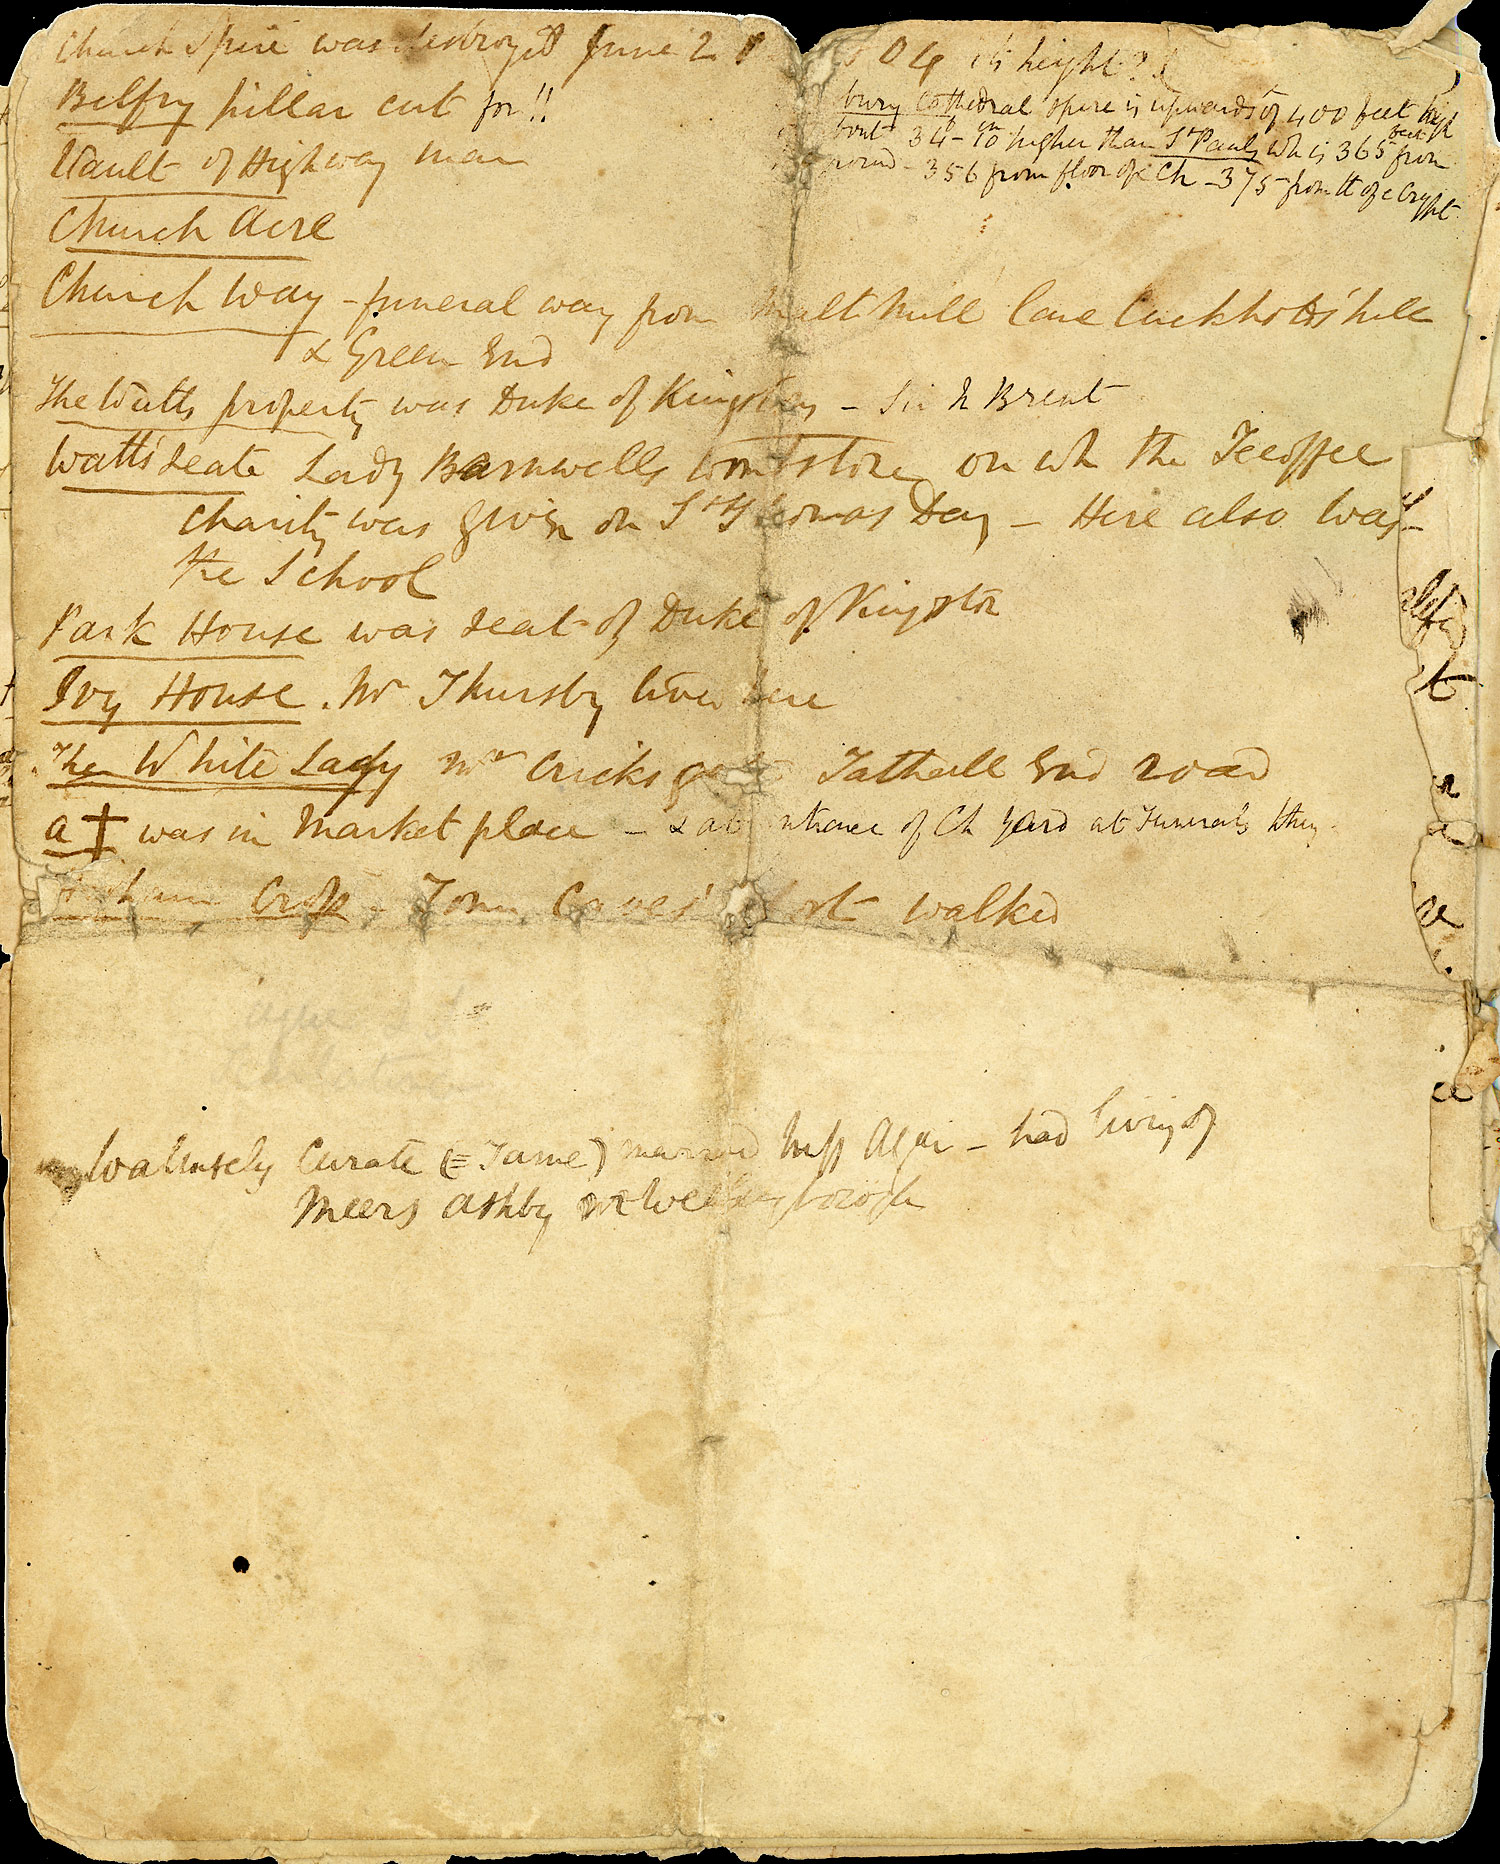 Church Spire was destroyed June 2 804 its height?
Belfry pillar cut for!!
bury Cathedral spire is upwards of 400 feet high
bout 34 - 10 in higher than St Pauls wh is 365 feet from
Vault of Highway man
ground - 356 from floor of Ch - 375 from tt of e Crypt
Church Acre
Church Way - funeral way from Malt Mill lane hill
& Green End
The Watts property was Duke of Kingston - Sir N Brent
Watts' seate Lady Barnwells tombstone on wh the Feeoffee
charity was given on St Thomas Day - Here also was
the School
Park House was seat of Duke of Kingston
Ivy House. Mr Thursby lived here
The White Lady Mrs Cricks Tathall End road
a † was in Market place - & at entrance of Ch Yard at Funerals they
Cross - Tom Caves' walked
Curate (= Tame) married Miss - had living of
Meers Ashby nr Wellingborough